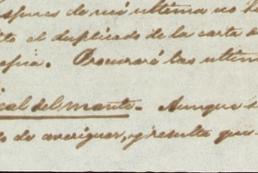 despues de mi ultima no h
ito el duplicado de la carta de
opia. Procuraré las ultim
eal del monte. Aunque s
do de averiguar, y resulta que